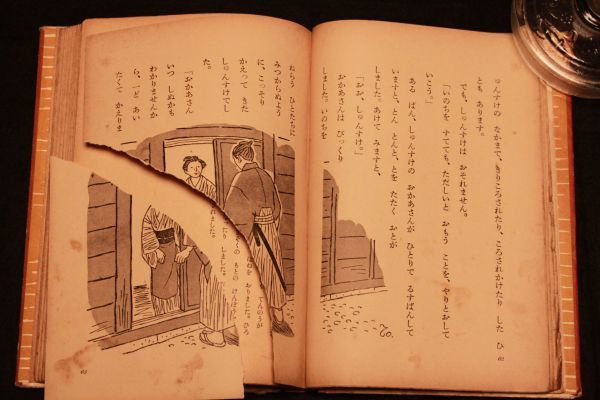 ゅんすけの なかまで、きりころされたり、ころされかけたり した ひ
とも あります。
でも、しゅんすけは おそれません。
「いのちを すてても、ただしいと おもう ことを、やりとおして
いこう。」
ある ばん、しゅんすけの おかあさんが ひとりで るすばんして
いますと、とん とんと、とを たたく おとが
しました。あけて みますと、
「おお、しゅんすけ。」
おかあさんは びっくり
しました。いのちを
62
ねらう ひとたちに
みつからぬよう
に、こっそり
かえって きた
しゅんすけでし
た。
「おかあさん
いつ しぬかも
わかりませんか
ら、一ど あい
たくて かえりま
てんのうが
おりました。ひろ
くの もとの けんぽう
たり しました。
れました。
63